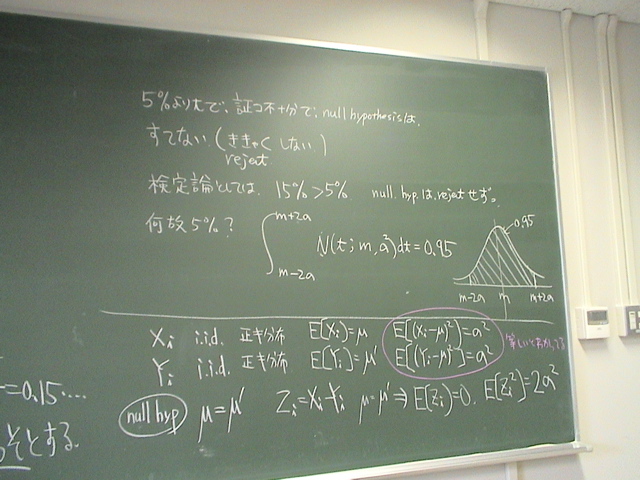 5%より大で、証コ不十分で、null hypothesisは、
すてない (ききゃく しない)
reject
検定論としては、 15%>5%. null. hyp. は、rejectせず。
何故5%?
∫ m+2a m-2a N(t; m, a²)dt = 0.95
0.95
m-2a m m+2a
Xi i.i.d. 正キ分布 E[Xi)=μ E[(Xi-μ)²]=a²
Yi i.i.d. 正キ分布 E[Yi]=μ' E[(Yi-μ')²]=a²
等しいと
=0.15...
null hyp μ=μ' Zi=Xi-Yi μ=μ'⇒E[Zi)=0. E[Zi²]=2a²
そとする.